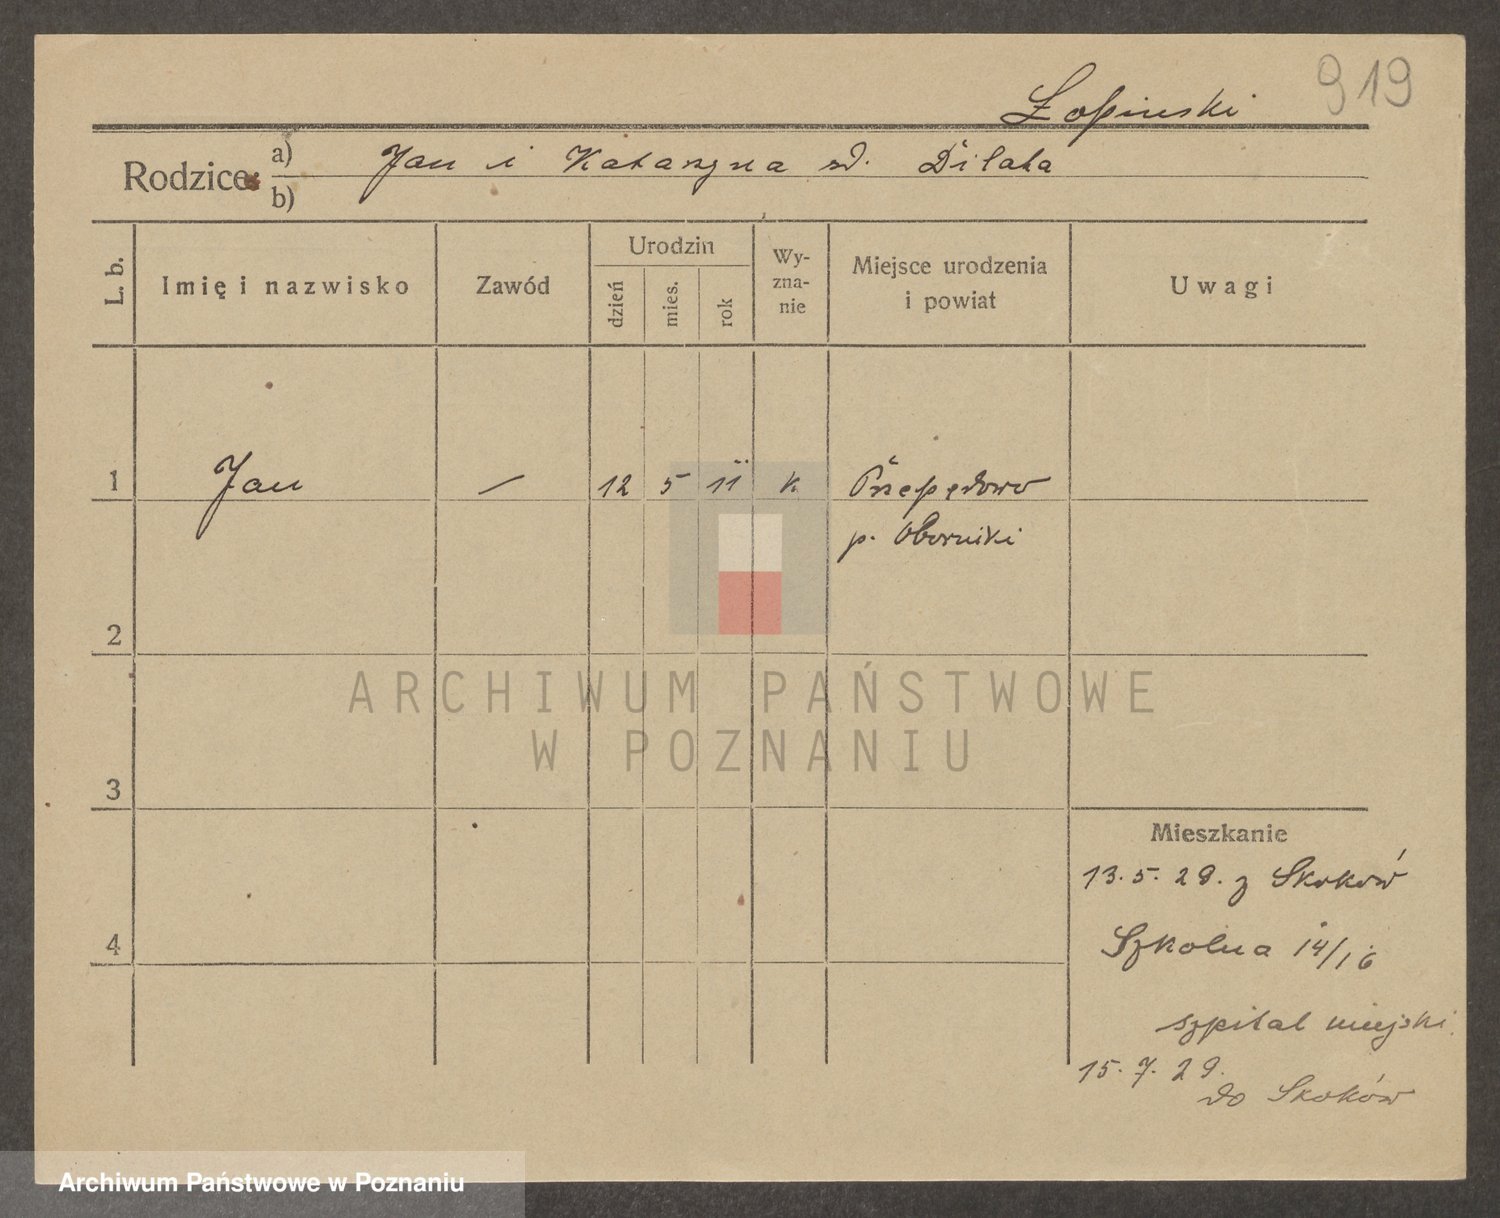 919
Łopinski
Rodzice: a) Jan i Katarzyna zd. Dilata
b)
L. b. Imię i nazwisko Zawód Urodzin dzień mies. rok Wy-zna-nie Miejsce urodzenia i powiat Uwagi
1 Jan — 12 5 11 k Przepędowo
p. Oborniki
2
3
4
Mieszkanie
13. 5. 29. z Skoków
Szkolna 14/16
szpital miejski
15. 7. 29.
do Skoków
ARCHIWUM PAŃSTWOWE
W POZNANIU
Archiwum Państwowe w Poznaniu